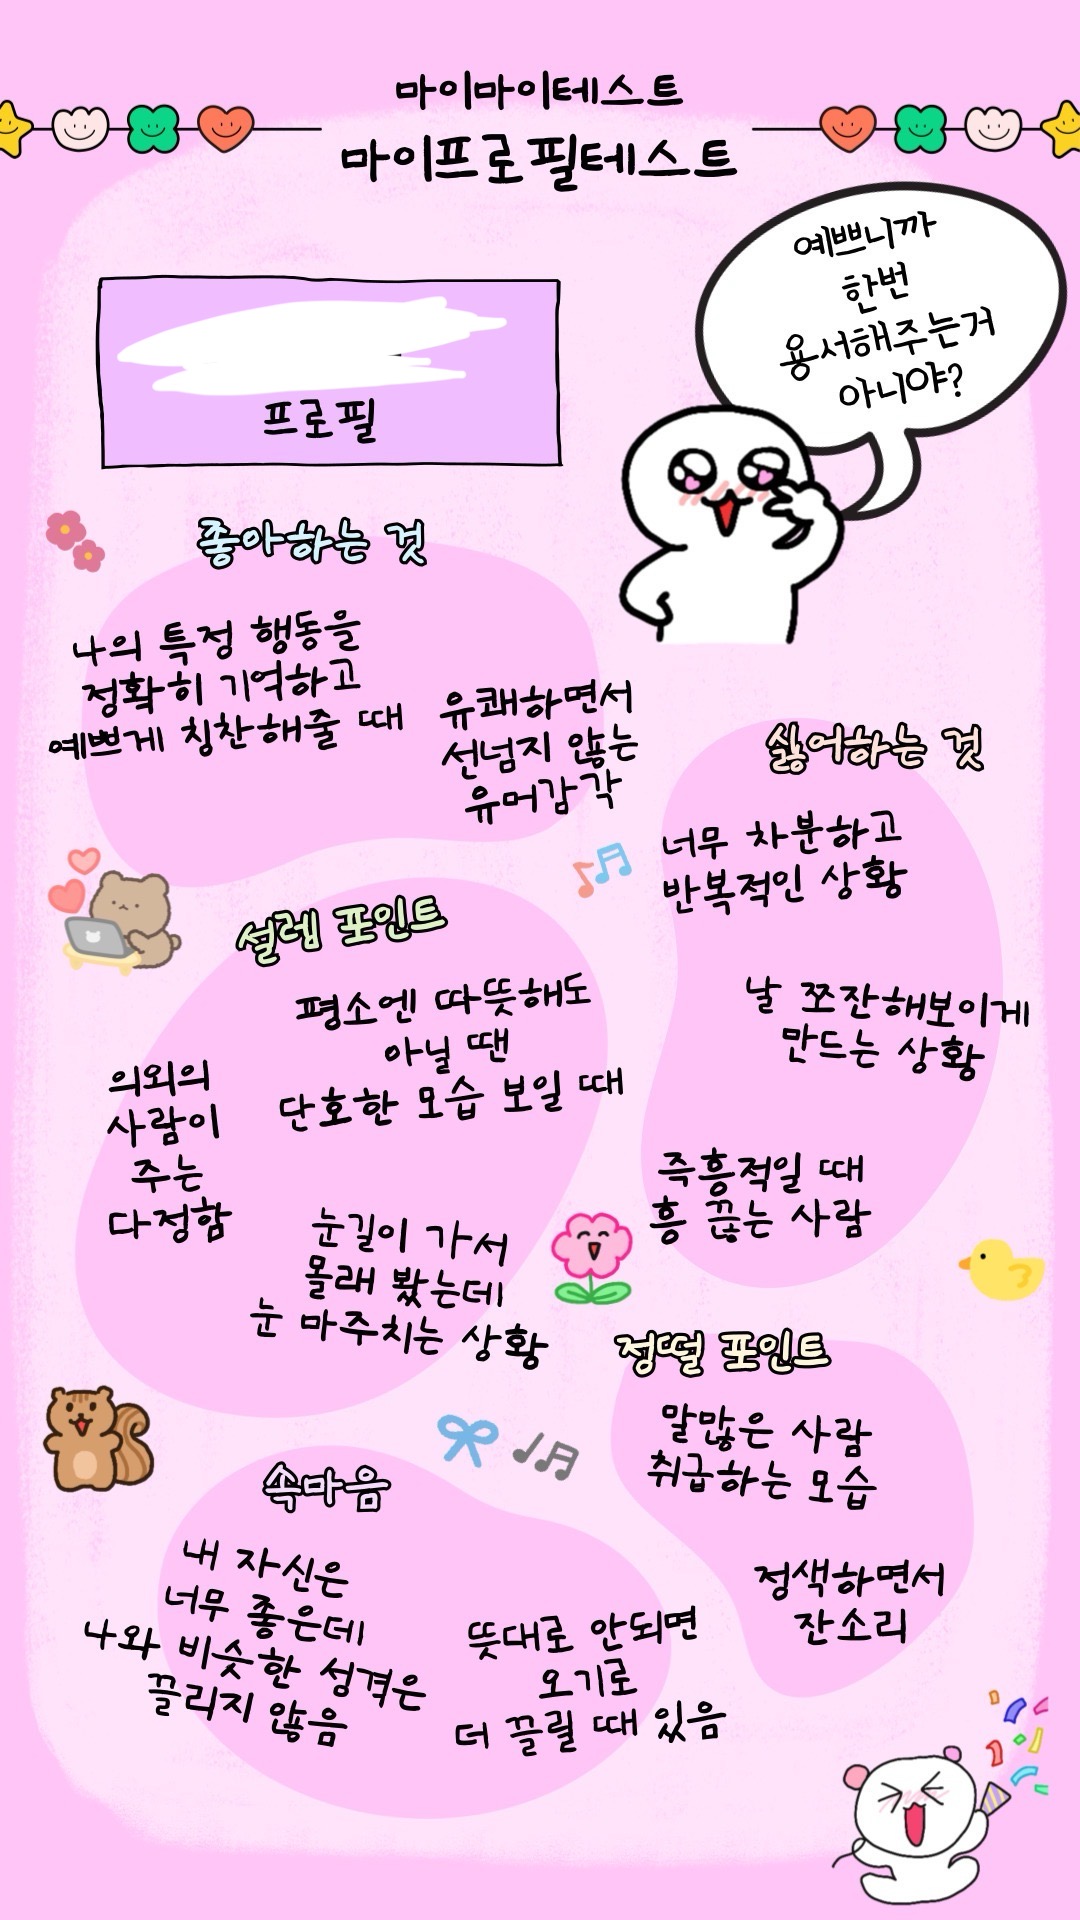 마이마이테스트
마이프로필테스트
예쁘니까
한번
용서해주는거
아니야?
프로필
좋아하는 것
나의 특정 행동을
정확히 기억하고
예쁘게 칭찬해줄 때
유쾌하면서
선넘지 않는
유머감각
싫어하는 것
너무 차분하고
반복적인 상황
날 쪼잔해보이게
만드는 상황
즉흥적일 때
흥 끊는 사람
설렘 포인트
평소엔 따뜻해도
아닐 땐
단호한 모습 보일 때
의외의
사람이
주는
다정함
눈길이 가서
몰래 봤는데
눈 마주치는 상황
정떨 포인트
말많은 사람
취급하는 모습
정색하면서
잔소리
속마음
내 자신은
너무 좋은데
나와 비슷한 성격은
끌리지 않음
뜻대로 안되면
오기로
더 끌릴 때 있음